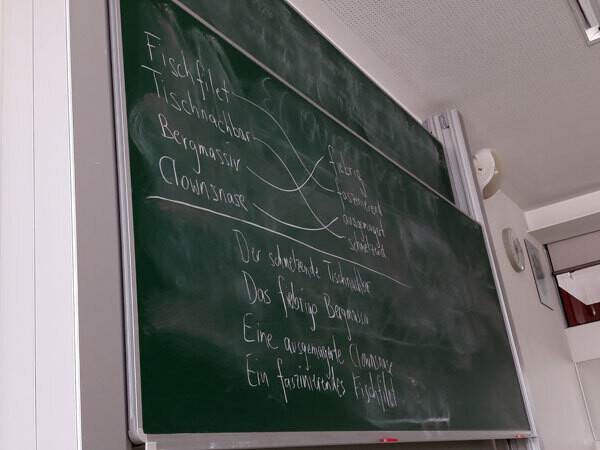 Fischfilet
Tischnachbar
Bergmassiv
Clownsnase
fiebrig
faszinierend
ausgemergelt
schmelzend
Der schmelzende Tischnachbar
Das fiebrige Bergmassiv
Eine ausgemergelte Clownsnase
Ein faszinierendes Fischfilet